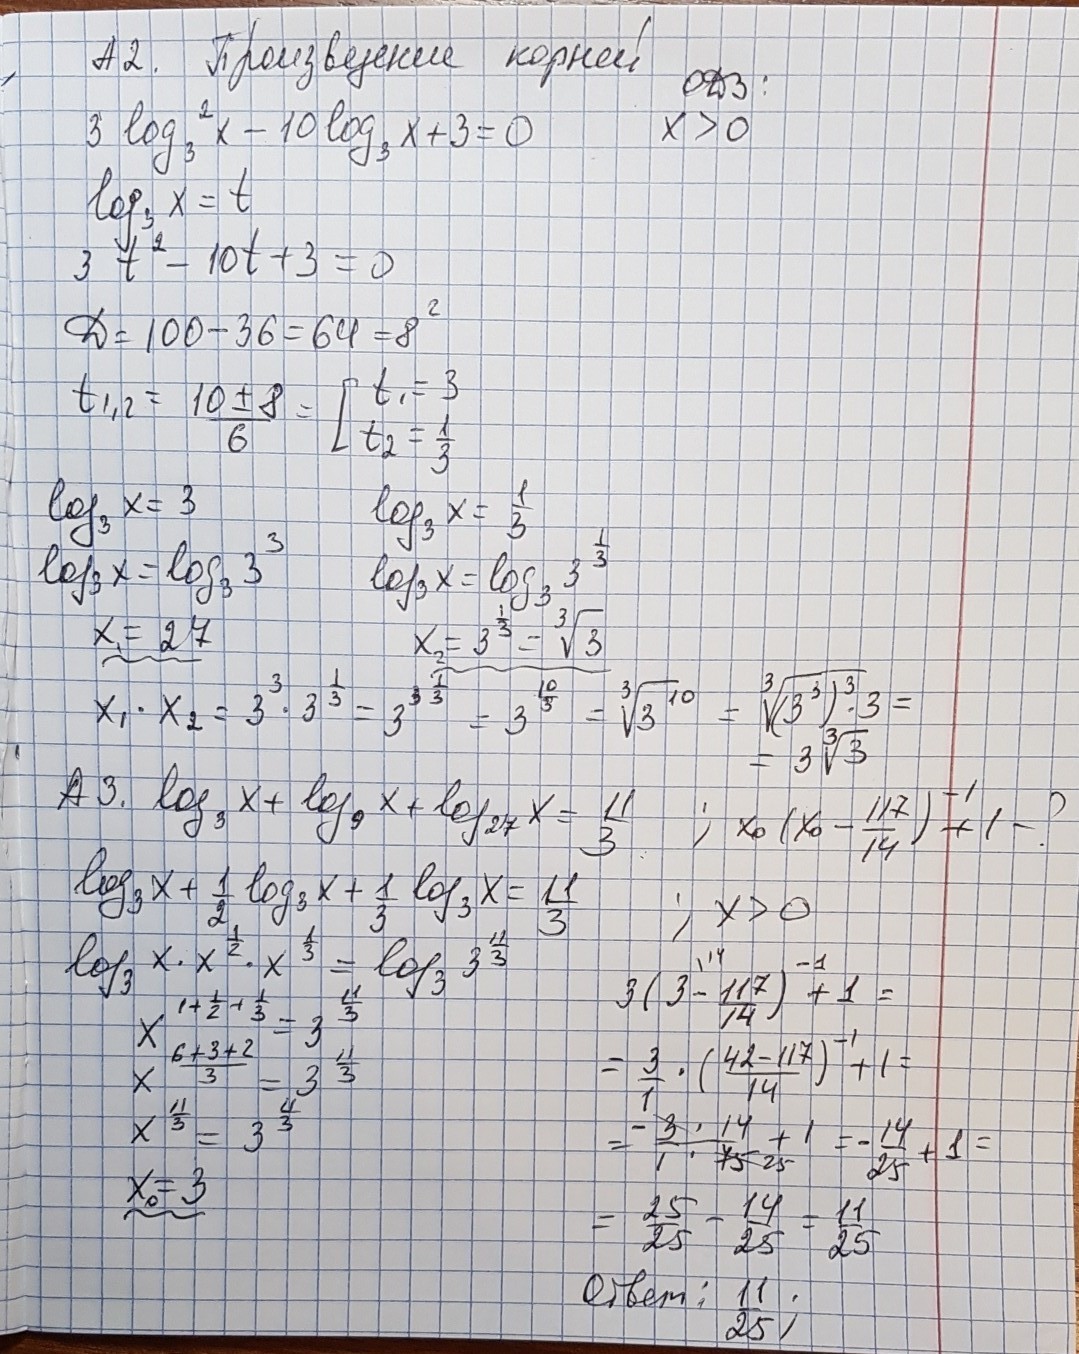 А2. Произведение корней
ОДЗ:
3 log₃²x − 10 log₃ x + 3 = 0     x > 0
log₃ x = t
3 t² − 10t + 3 = 0
D = 100 − 36 = 64 = 8²
t₁,₂ = (10 ± 8)/6 = [ t₁ = 3
t₂ = 1/3
log₃ x = 3     log₃ x = 1/3
log₃ x = log₃ 3³     log₃ x = log₃ 3^(1/3)
x₁ = 27     x₂ = 3^(1/3) = ∛3
x₁ · x₂ = 3³ · 3^(1/3) = 3^(3 1/3) = 3^(10/3) = ∛(3¹⁰) = ∛((3³)³ · 3) =
= 3∛3
А3. log₃ x + log₉ x + log₂₇ x = 11/3 ; x₀ (x₀ − 117/14)⁻¹ + 1 − ?
log₃ x + 1/2 log₃ x + 1/3 log₃ x = 11/3 ; x > 0
log₃ x · x^(1/2) · x^(1/3) = log₃ 3^(11/3)
x^(1 + 1/2 + 1/3) = 3^(11/3)
x^((6+3+2)/3) = 3^(11/3)
x^(11/3) = 3^(11/3)
x₀ = 3
3 (3 − 117/14)⁻¹ + 1 =
= 3/1 · ((42 − 117)/14)⁻¹ + 1 =
= − (3 · 14)/(1 · 75 25) + 1 = − 14/25 + 1 =
= 25/25 − 14/25 = 11/25
Ответ: 11/25;